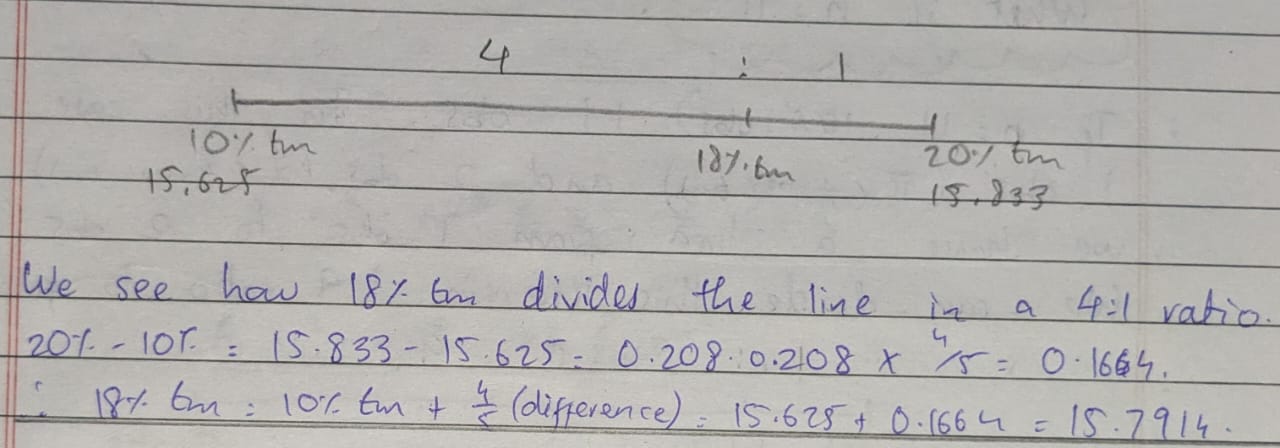 4 : 1
10% tm 18% tm 20% tm
15.625 15.833
We see how 18% tm divides the line in a 4:1 ratio.
20% - 10% = 15.833 - 15.625 = 0.208. 0.208 x 4/5 = 0.1664.
∴ 18% tm = 10% tm + 4/5 (difference) = 15.625 + 0.1664 = 15.7914.